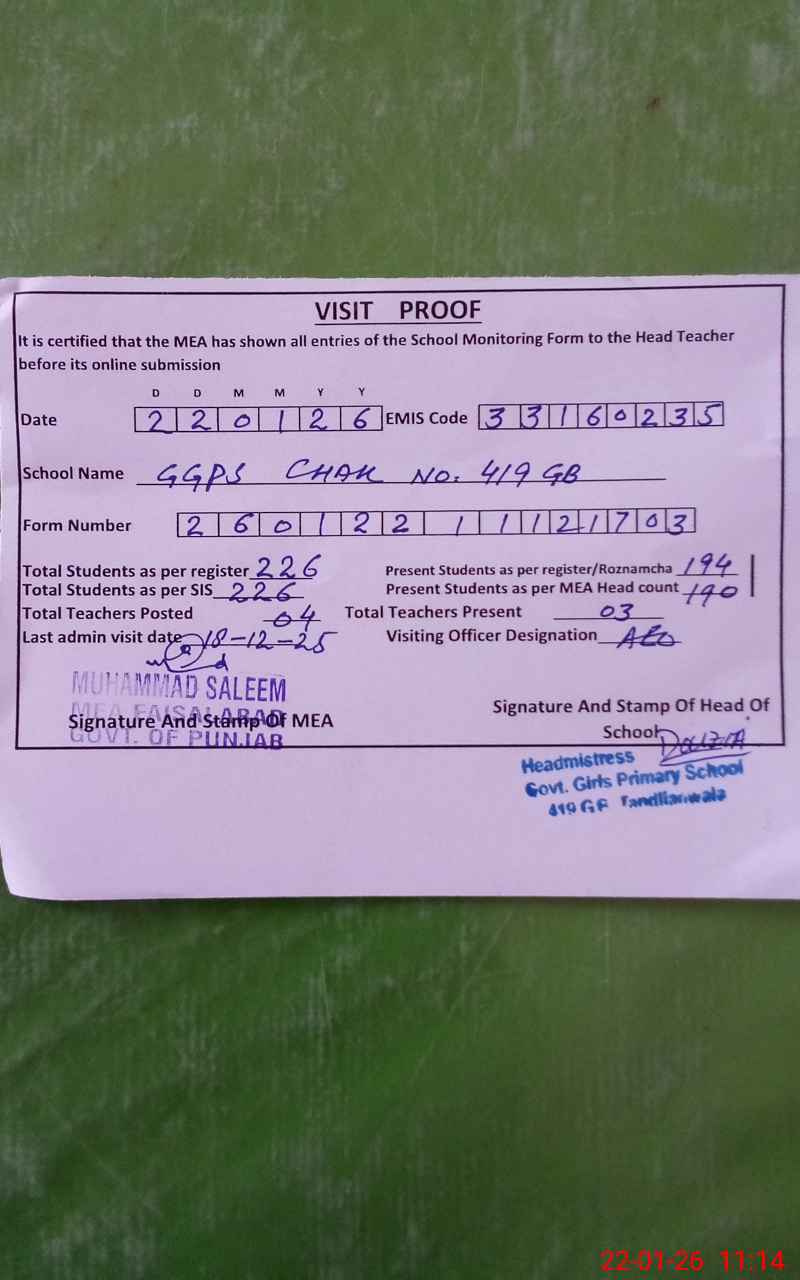 VISIT PROOF
It is certified that the MEA has shown all entries of the School Monitoring Form to the Head Teacher
before its online submission
D D M M Y Y
Date 2 2 0 1 2 6 EMIS Code 3 3 1 6 0 2 3 5
School Name GGPS CHAK NO. 419 GB
Form Number 2 6 0 1 2 2 1 1 1 2 1 7 0 3
Total Students as per register 226 Present Students as per register/Roznamcha 194
Total Students as per SIS 226 Present Students as per MEA Head count 190
Total Teachers Posted 04 Total Teachers Present 03
Last admin visit date 18-12-25 Visiting Officer Designation AEO
MUHAMMAD SALEEM
MEA FAISALABAD
GOVT. OF PUNJAB
Signature And Stamp Of MEA
Signature And Stamp Of Head Of
School
Headmistress
Govt. Girls Primary School
419 G.B Tandlianwala
22-01-26 11:14